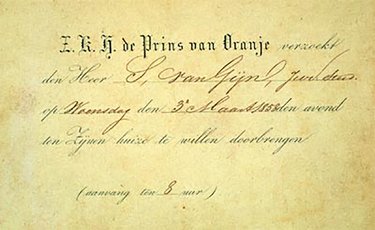 Z. K. H. de Prins van Oranje verzoekt
den Heer S. van Gijn,
op Woensdag den 3 Maart 1858 den avond
ten Zijnen huize te willen doorbrengen
(aanvang ten 8 uur).